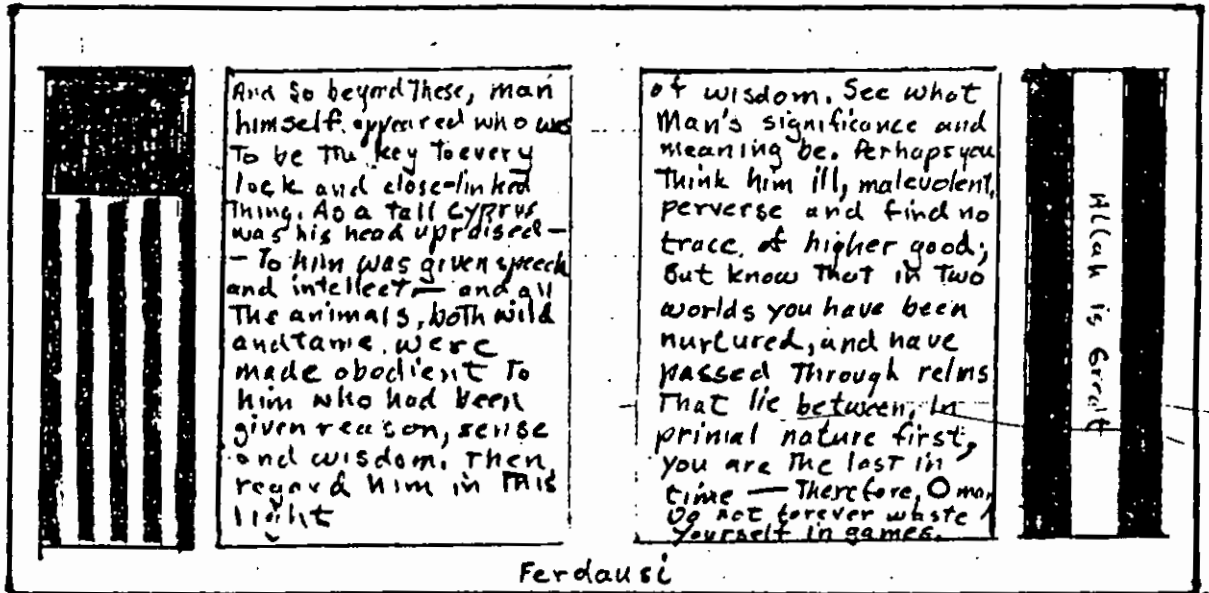 And So beyond These, man
himself appeared who was
To be The key To every
lock and close-linked
Thing. As a tall Cyprus
was his head upraised—
— To him was given speech
and intellect — and all
The animals, both wild
and tame, were
made obodient To
him who had been
given reason, sense
and wisdom. Then,
regard him in This
light
of wisdom. See what
Man's significance and
meaning be. Perhaps you
Think him ill, malevolent,
perverse and find no
trace of higher good;
But know That in Two
worlds you have been
nurtured, and have
passed Through relms
That lie between, In
primal nature first,
you are The last in
time — Therefore, O man
Do not forever waste
Yourself in games.
Allah is Grealt
Ferdausi